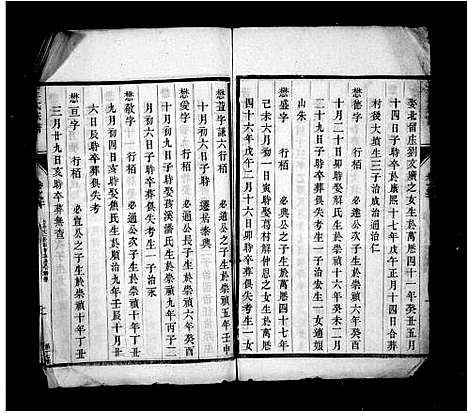 娶北留莊劉文廣之女生於萬曆四十一年癸丑五月
十四日子時卒於康熙十七年戊午正月十四日合葬
村後大墳生三子治成治通治仁
懋德字 行栢 必達公次子生於崇禎六年癸酉
十月二十日子時卒葬俱失考生一女適姐
山朱
懋盛字 行栢 必興公之子生於萬曆四十七年
己未六月初一日寅時娶葛村解仲恩之女生於萬曆
四十六年戊午二月十六日戌時卒葬俱失考生一女
懋萱字謙六行栢 必進公之子生於崇禎五年壬申
十月初六日子時 遷居泰興
懋愛字 行栢 必通公長子生於崇禎六年癸酉
月初六日子時娶孩溪潘氏生於崇禎九年丙子二
月二十九日子時卒葬俱失考生一子治永
懋敬字 行栢 必通公次子生於崇禎十年丁丑
九月初四日亥時娶焦氏生於順治九年壬辰十月廿
六日辰時卒葬俱失考
懋亘字 行栢 必選公之子生於崇禎十年丁丑
三月廿九日亥時卒葬無查